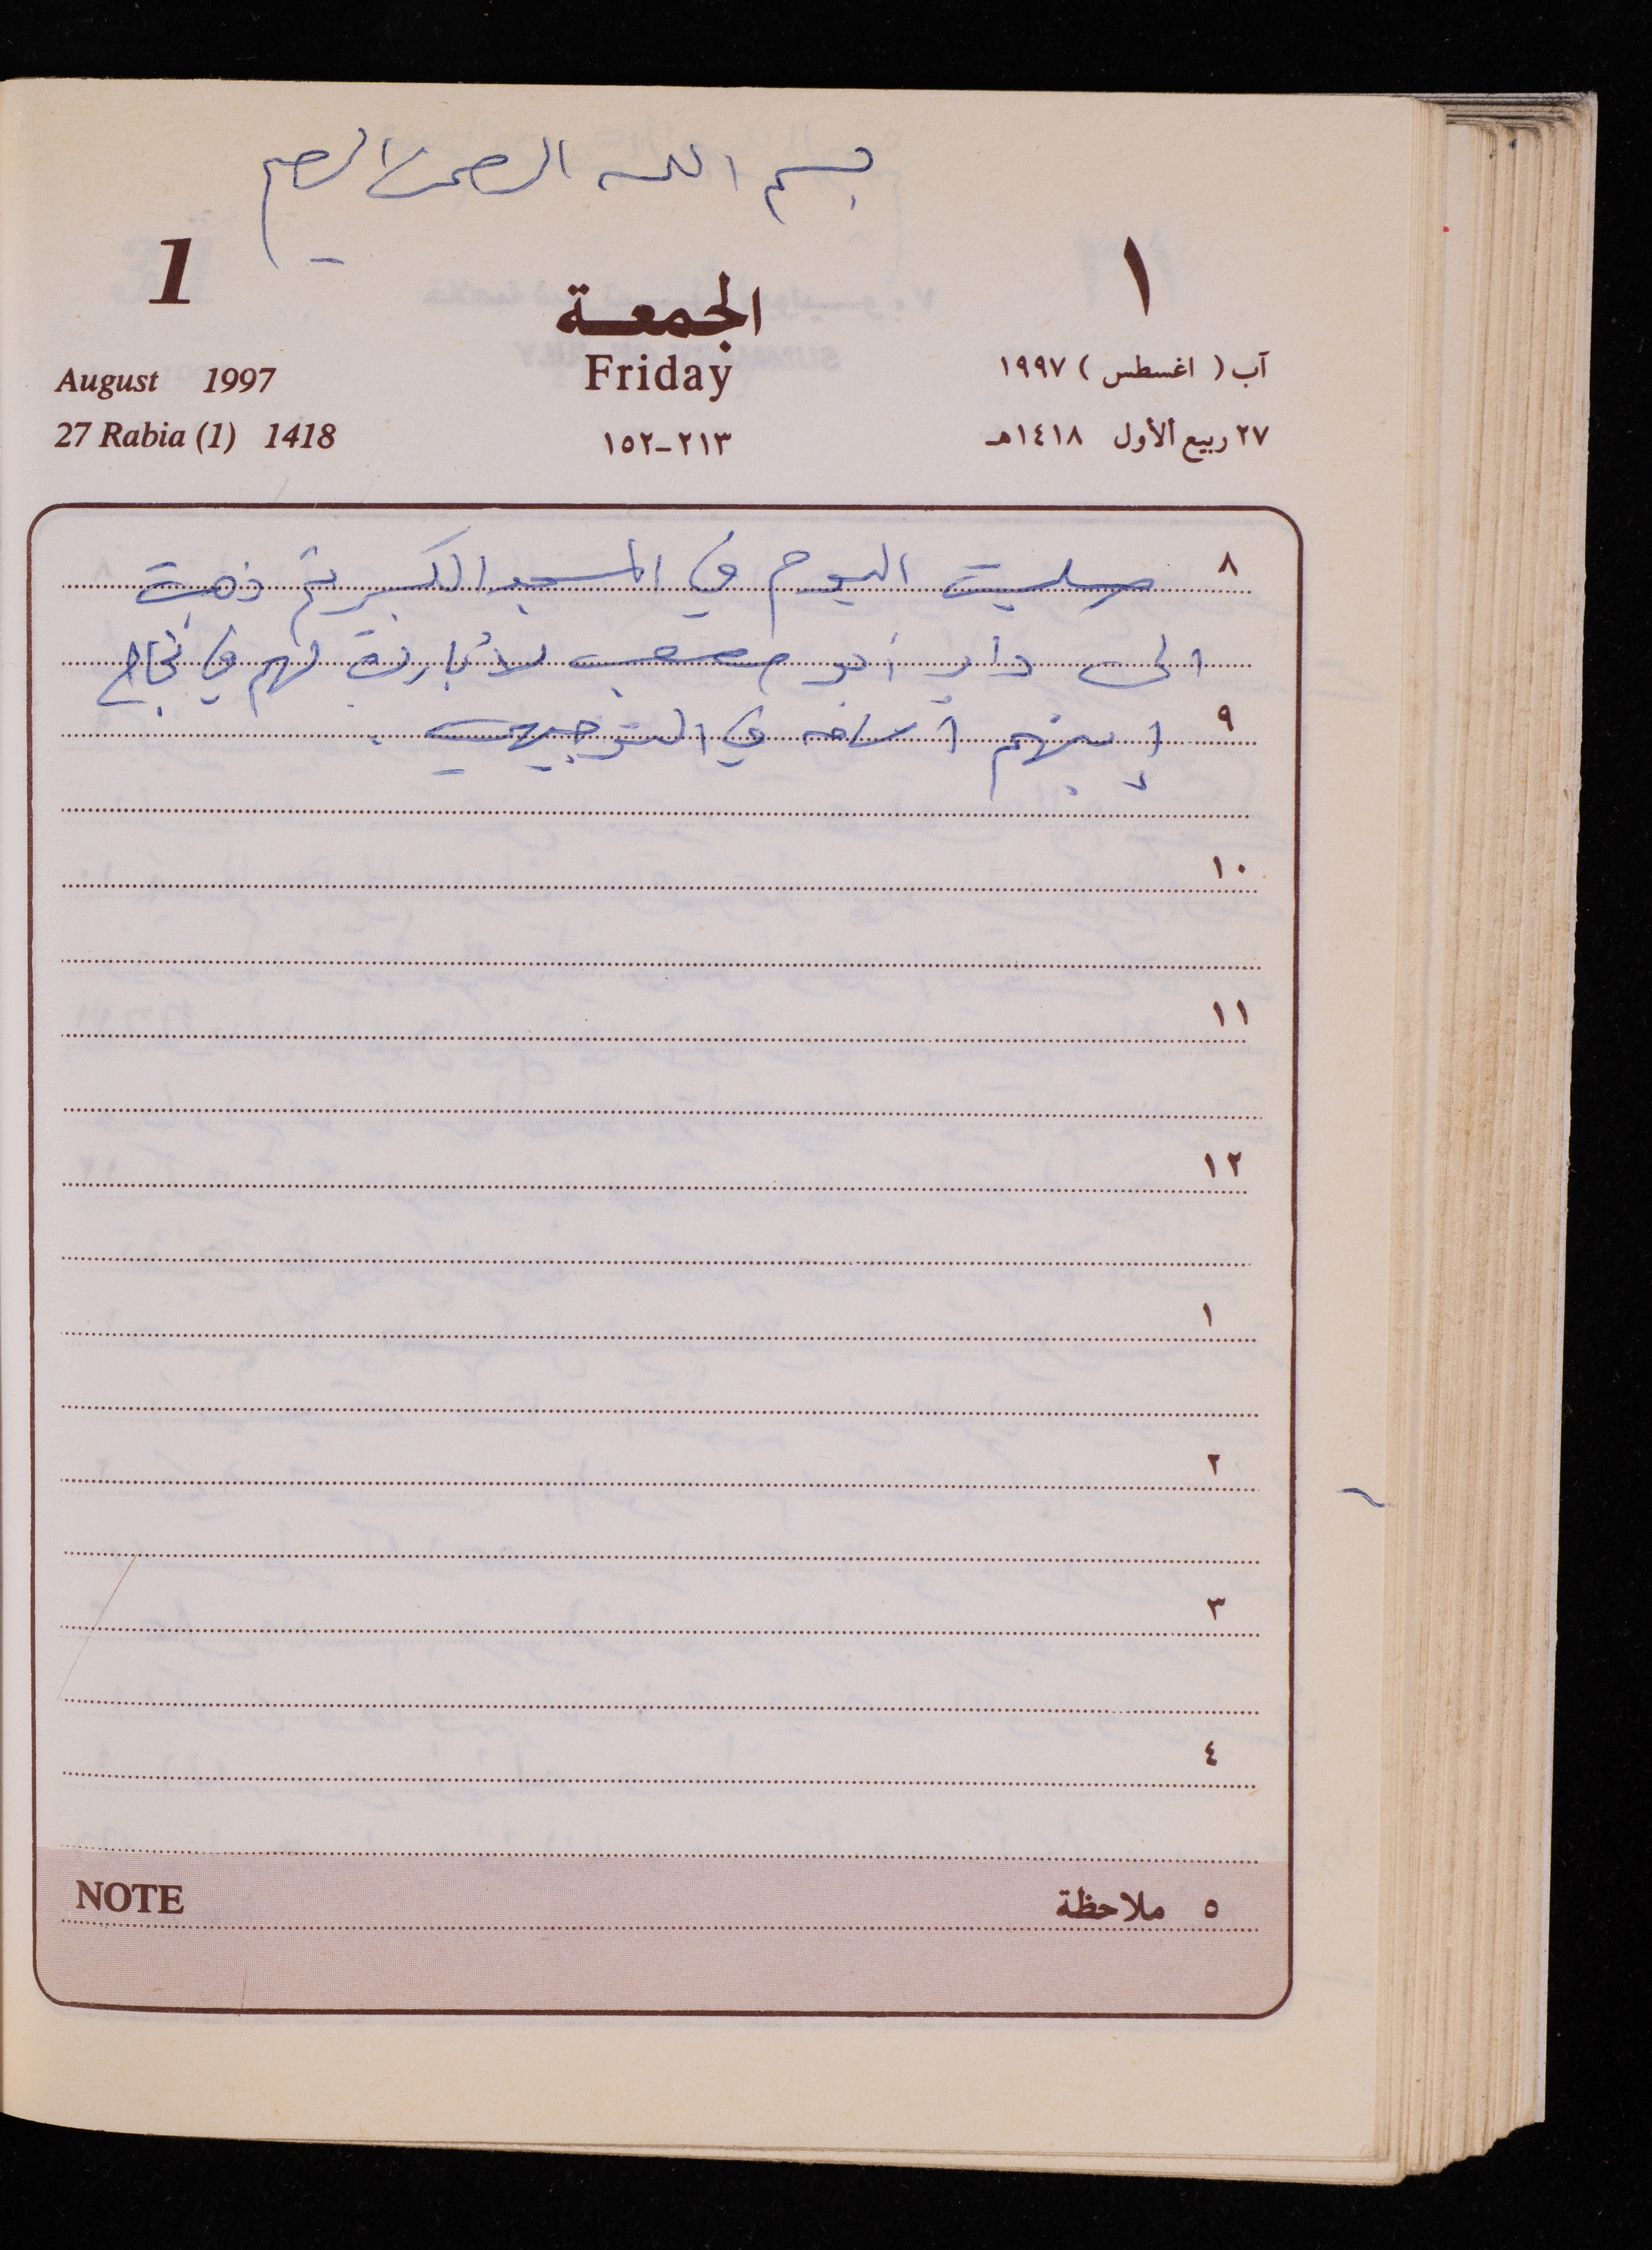 بسم الله الرحمن الرحيم
1
١
الجمعة
August 1997
Friday
آب ( اغسطس ) ١٩٩٧
27 Rabia (1) 1418
٢١٣-١٥٢
٢٧ ربيع الأول ١٤١٨هـ
٨ صليت اليوم في المسجد الكبير ثم ذهبت
الى دار أبو مصعب لأبارك لهم في نجاح
٩ إبنهم أسامه في التوجيهي .
١٠
١١
١٢
١
٢
٣
٤
NOTE
٥ ملاحظة